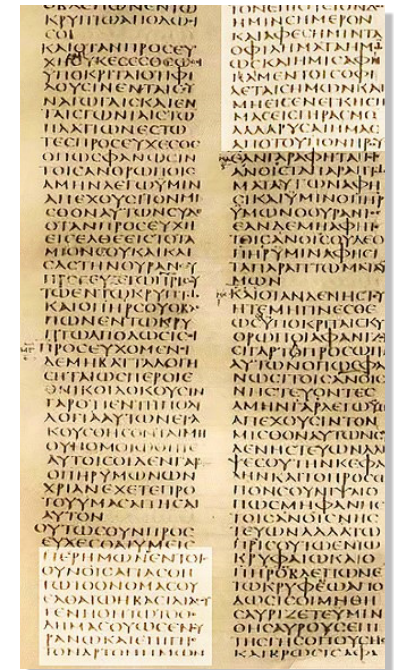 ΚΡΥΠΤΩΑΠΟΔΩΙ
CΟΙ
ΚΑΙΟΤΑΝΠΡΟCΕΥ
ΧΗΟΥΚΕCΕCΘΕΩC
ΥΠΟΚΡΙΤΑΙΟΤΙΦΙ
ΛΟΥCΙΝΕΝΤΑΙCΥ
ΝΑΓΩΓΑΙCΚΑΙΕΝ
ΤΑΙCΓΩΝΙΑΙCΤΩ
ΠΛΑΤΙΩΝΕCΤΩ
ΤΕCΠΡΟCΕΥΧΕCΘΕ
ΟΠΩCΦΑΝΩCΙΝ
ΤΟΙCΑΝΘΡΩΠΟΙC
ΑΜΗΝΛΕΓΩΥΜΙΝ
ΑΠΕΧΟΥCΙΤΟΝΜΙ
CΘΟΝΑΥΤΩΝCΥΔΕ
ΟΤΑΝΠΡΟCΕΥΧΗ
ΕΙCΕΛΘΕΕΙCΤΟΤΑ
ΜΙΟΝCΟΥΚΑΙΚΛΙ
CΑCΤΗΝΘΥΡΑΝCΥ
ΤΩΕΝΤΩΚΡΥΠΤΩ
ΚΑΙΟΠΗΡCΟΥΟΒΛ
ΠΩΝΕΝΤΩΚΡΥ
ΠΤΩΑΠΟΔΩCΙCΟΙ
ΠΡΟCΕΥΧΟΜΕΝΟΙ
ΔΕΜΗΒΑΤΤΑΛΟΓΗ
CΗΤΑΙΩCΠΕΡΟΙΕ
ΘΝΙΚΟΙΔΟΚΟΥCΙΝ
ΓΑΡΟΤΙΕΝΤΗΠΟΛΥ
ΛΟΓΙΑΑΥΤΩΝΕΙCΑ
ΚΟΥCΘΗCΟΝΤΑΙΜΗ
ΟΥΝΟΜΟΙΩΘΗΤΕ
ΑΥΤΟΙCΟΙΔΕΝΓΑΡ
ΟΠΗΡΥΜΩΝΩΝ
ΧΡΙΑΝΕΧΕΤΕΠΡΟ
ΤΟΥΥΜΑCΑΙΤΗCΑΙ
ΑΥΤΟΝ
ΟΥΤΩCΟΥΝΠΡΟC
ΕΥΧΕCΘΑΙΥΜΕΙC
ΠΕΡΗΜΩΝΟΕΝΤΟΙC
ΟΥΝΟΙCΑΓΙΑCΘΗ
ΤΩΤΟΟΝΟΜΑCΟΥ
ΕΛΘΑΤΩΗΒΑCΙΛΕΙΑ
ΓΕΝΗΘΗΤΩΤΟΘΕ
ΛΗΜΑCΟΥΩCΕΝΟΥ
ΡΑΝΩΚΑΙΕΠΙΓΗC
ΤΟΝΑΡΤΟΝΗΜΩΝ
ΤΟΝΕΠΙΟΥCΙΟΝΔΟC
ΗΜΙΝCΗΜΕΡΟΝ
ΚΑΙΑΦΕCΗΜΙΝΤΑ
ΟΦΙΛΗΜΑΤΑΗΜΩ
ΩCΚΑΙΗΜΙCΑΦΗ
ΚΑΜΕΝΤΟΙCΟΦΙ
ΛΕΤΑΙCΗΜΩΝΚΑΙ
ΜΗΕΙCΕΝΕΓΚΗCΗ
ΜΑCΕΙCΠΙΡΑCΜΟ
ΑΛΛΑΡΥCΑΙΗΜΑC
ΑΠΟΤΟΥΠΟΝΗΡΟΥ
ΕΑΝΓΑΡΑΦΗΤΑΙ
ΑΝΟΙCΤΑΠΑΡΑΠΤΩ
ΜΑΤΑΑΥΤΩΝΑΦΗ
CΙΚΑΙΥΜΙΝΟΠΗΡ
ΥΜΩΝΟΟΥΡΑΝΙΟC
ΕΑΝΔΕΜΗΑΦΗΤΕ
ΤΟΙCΑΝΟΙCΟΥΔΕΟ
ΠΗΡΥΜΙΝΑΦΗCΙ
ΤΑΠΑΡΑΠΤΩΜΑΤΑΥ
ΜΩΝ
ΚΑΙΟΤΑΝΔΕΝΗCΤΕΥ
ΗΤΕΜΗΓΙΝΕCΘΕ
ΩCΥΠΟΚΡΙΤΑΙCΚΥ
ΘΡΩΠΟΙΑΦΑΝΙΖΟΥ
CΙΓΑΡΤΟΠΡΟCΩΠΟ
ΑΥΤΩΝΟΠΩCΦΑ
ΝΩCΙΤΟΙCΑΝΟΙC
ΝΗCΤΕΥΟΝΤΕC
ΑΜΗΝΓΑΡΛΕΓΩΥΜΙ
ΑΠΕΧΟΥCΙΝΤΟΝ
ΜΙCΘΟΝΑΥΤΩΝCΥ
ΔΕΝΗCΤΕΥΩΝΑΛΙ
ΨΕCΟΥΤΗΝΚΕΦΑ
ΛΗΝΚΑΙΤΟΠΡΟCΩ
ΠΟΝCΟΥΝΙΨΑΙΟ
ΠΩCΜΗΦΑΝΗC
ΤΟΙCΑΝΟΙCΝΗC
ΤΕΥΩΝΑΛΛΑΤΩ
ΠΡΙCΟΥΤΩΕΝΤΩ
ΚΡΥΦΑΙΩΚΑΙΟ
ΠΗΡCΟΒΛΕΠΩΝΕ
ΤΩΚΡΥΦΑΙΩΑΠΟ
ΔΩCΙCΟΙΜΗΘΗ
CΑΥΡΙΖΕΤΕΥΜΙΝ
ΘΗCΑΥΡΟΥCΕΠΙ
ΤΗCΓΗCΟΠΟΥCΗC
ΚΑΙΒΡΩCΙCΑΦΑ